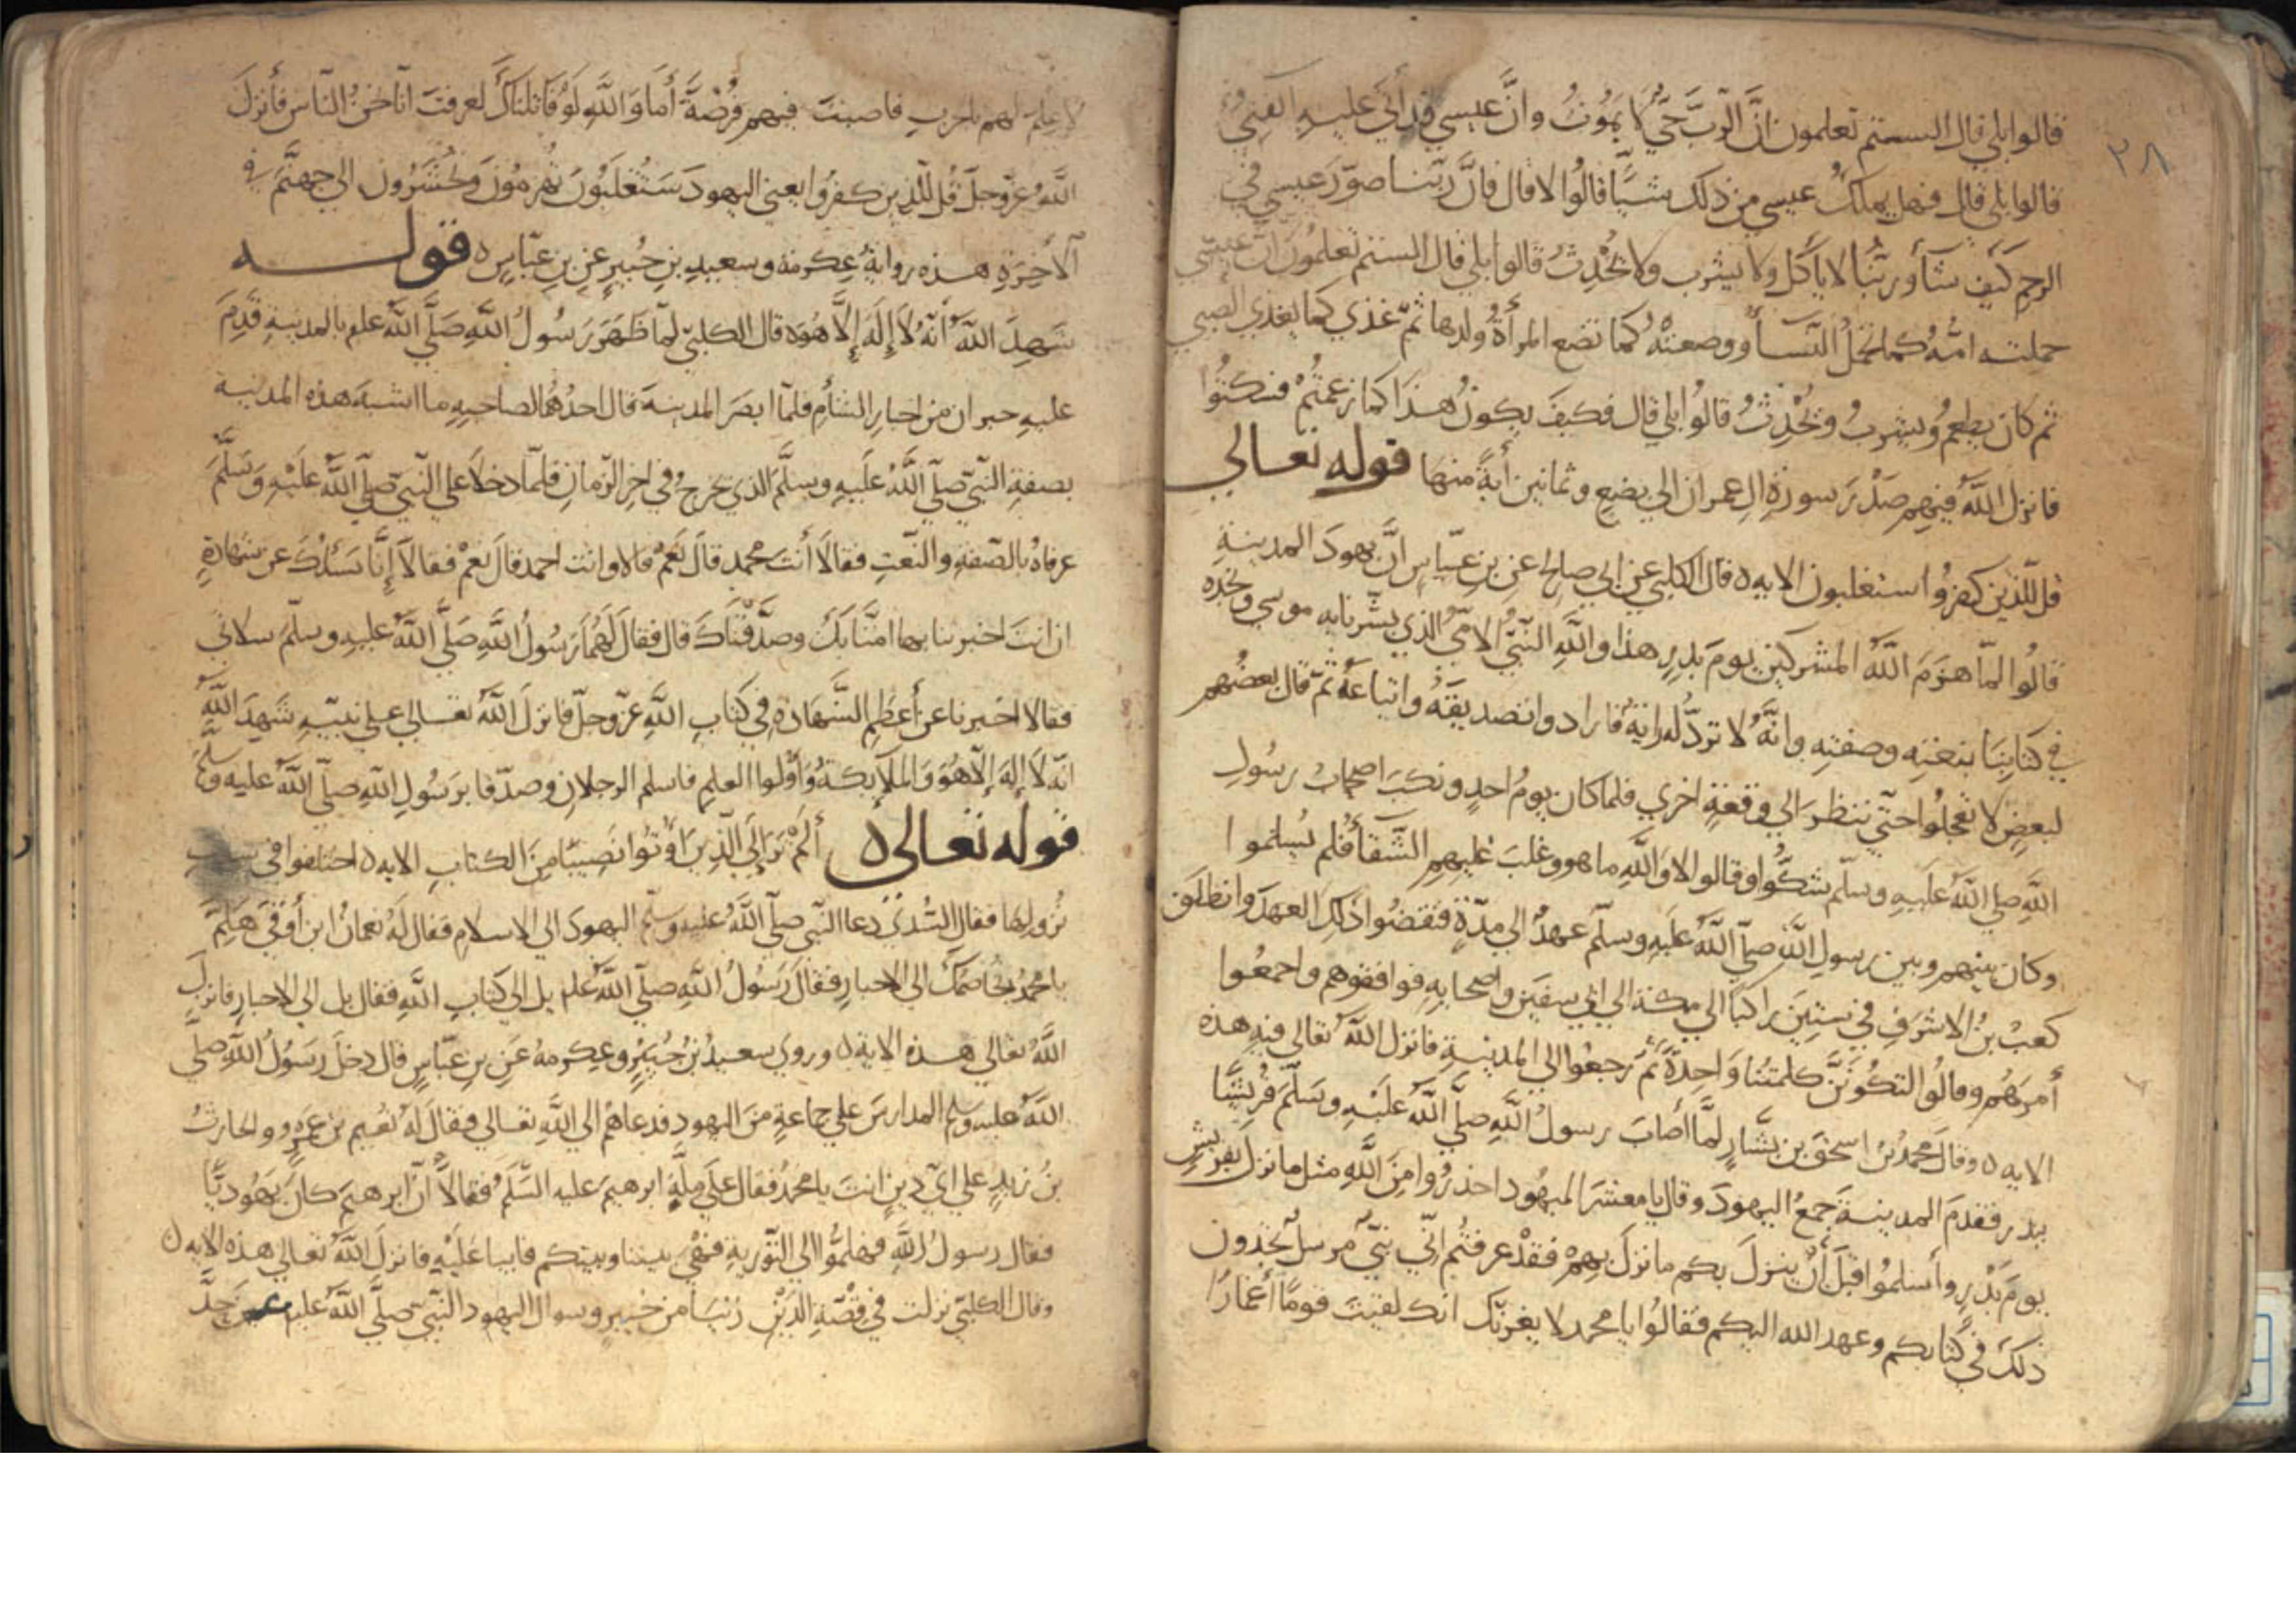 ٣٨
قالوا بلي قال الستم تعلمون انَّ الرّبَّ حَيٌّ لا يَمُوتُ وانَّ عيسي قد اتي عليهِ الفَنِيُ
قالوا بلي قال فهل يملكُ عيسي من ذلك شيًّا قالُوا لا قال فانَّ ربّنا صوّرَ عيسي في
الرحمِ كَيفَ شآء وربُّنا لا يأكل ولا يشرب ولا يُحْدِثُ قالوا بلي قال الستم تعلمُونَ انّ عيسي
حملته امّهُ كما تحملُ النّسآء ووضعتْهُ كما تضع المرأةُ ولدها ثمّ غذي كما يغذي الصبي
ثم كان يطعمُ ويشربُ ويُحْدِثُ قالوُا بلي قال فكيفَ يكونُ هذا كما زعمتُمْ فسكتُوا
فانزل اللّهُ فيهِم صَدْرَ سورةِ الِ عمران الي بضعٍ وثمانين أيةً منها قوله تعالي
قل للّذين كفرُوا ستغلبون الايه ٥ قال الكلبي عن ابي صالحٍ عن بن عبّاسٍ انَّ يهودَ المدينةِ
قالُوا لمّا هزمَ اللّهُ المشركين يومَ بدرٍ هذا واللّهِ النّبيُّ الامّيُّ الذي بشّرنا به موسي ونجده
في كتابِنا بنعتِه وصفتِهِ وانّهُ لا تردُّ له رايةٌ فارادوا تصديقَهُ واتباعَهُ ثمّ قال بعضُهم
لبعضٍ لا تعجلُوا حتّي ننظرَ الي وقعةٍ اخري فلما كان يومُ احدٍ ونكبَ اصحابُ رسُولِ
اللّهِ صلي اللّهُ عليهِ وسلّم شكّوا وقالوا لا واللّهِ ما هو وغلبَ عليهِم الشّقأُ فلم يُسلموا
وكان بينهم وبين رسولِ اللّهِ صلّي اللّهُ عليهِ وسلّم عهدٌ الي مدّةٍ فنقضُوا ذلك العهدَ وانطلَقَ
كعبُ بنُ الاشرفِ في ستينَ راكبًا الي مكة الي ابي سفينَ واصحابِهِ فوافقوهم واجمعُوا
أمرهُم وقالُوا لتكونَنَّ كلمتُنا وَاحِدةً ثمّ رجعُوا الي المدينةِ فانزل اللّهُ تعالي فيهِ هذه
الايه ٥ وقالَ محمدُ بنُ اسحقَ بن بشّارٍ لمَّا أصابَ رسولُ اللّهِ صلّي اللّهُ عليْهِ وسَلّمَ قُريشًا
ببدر فقدمَ المدينةَ جمعَ اليهودَ وقال يا معشرَ اليهُود احذرُوا مِنَ اللّهِ مثل ما نزل بقريشٍ
يومَ بَدْرٍ وأسلمُوا قبلَ أنْ ينزلَ بكم ما نزلَ بهمْ فقدْ عرفتُم انّي نبيٌّ مُرسلٌ تجدون
ذلكَ في كتابكم وعهد الله اليكم فقالُوا يا محمد لا يغرنّك انك لقيتَ قومًا أغمارًا
لا علم لهم بالحربِ فاصبتَ فيهم فُرْصَةً أما واللّهِ لو قاتلناكَ لعرفتَ انّا نحنُ الناسُ فأنزلَ
اللّهُ عزّ وجلّ قُل للّذين كفرُوا يعني اليهودَ سَتُغلَبُونَ تُهزمُونَ وتُحْشَرُون الي جهنّمَ في
الآخِرَةِ هذه روايةُ عِكرمة وسعيدِ بنِ جُبيرٍ عن بنِ عبّاسٍ ٥ قولـــه
شهِدَ اللّهُ أنّهُ لاَ إلَهَ إلّا هُوَ ٥ قال الكلبيّ لمّا ظهَرَ رسُولُ اللّهِ صَلّي اللّهُ علم بالمدينةِ قَدِمَ
عليهِ حبران من احبارِ الشأمِ فلمّا ابصَرَ المدينةَ قال احدُهُما لصاحبِهِ ما اشبهَ هذه المدينة
بصفةِ النّبيّ صلّي اللّهُ علَيهِ وسلَّمَ الذي يخرجُ في اخرِ الزّمانِ فلمّا دخلاَ علي النّبيّ صلّي اللّهُ علَيْهِ وسَلّمَ
عرفاهُ بالصّفةِ والنّعتِ فقالاَ أنتَ محمد قالَ نعَمْ قالا وانت احمد قالَ نعَمْ فقالاَ إنَّا نسَئلُكَ عن شهادةٍ
ان انتَ اخبرتنا بها امنَّا بكَ وصدَّقْناكَ قال فقالَ لهُمَا رَسُولُ اللّهِ صَلّي اللّهُ عليهِ وسلّمَ سلاني
فقالا اخبرنا عن أعظمِ الشّهادةِ في كتابِ اللّهِ عزّ وجلّ فانزلَ اللّهُ تعالي علي نبيّهِ شَهِدَ اللّهُ
انّه لاَ إلهَ إلّا هُوَ وَالملاَيكةُ وَأُولُوا العلمِ فاسلم الرجلانِ وصدّقا برَسُولِ اللّهِ صلّي اللّهُ عليه وسلّم
قوله تعالي ٥ ألمْ ترَ إلَي الّذِينَ أوتُوا نَصِيبًا مِنَ الكتابِ الايه ٥ اختلفوا في سبب
نزولها فقال السُّدّيّ دعا النّبي صلّي اللّهُ عليهِ وسلّم اليهودَ الي الاسلامِ فقال لهُ نعمانُ ابن أوفَي هَلُمَّ
يا محمدُ نخاصمُك الي الاحبارِ فقالَ رَسُولُ اللّهِ صلّي اللّهُ علم بل الي كتابِ اللّهِ فقال بل الي الاحبارِ فانزل
اللّهُ تعالي هذه الاية ٥ وروي سعيدُ بنُ جُبَيْرٍ وعِكرمةُ عَن بنِ عبّاسٍ قال دخلَ رسُولُ اللّهِ صلّي
اللّهُ عليه وسلم المدارسَ علي جماعةٍ منَ اليهود فدعاهُم الي اللّهِ تعالي فقالَ لهُ نُعَيم بن عمرٍو والحارثُ
بنُ زيدٍ علي ايّ دينٍ انتَ يا محمدُ فقال علَي ملّةِ ابرهيمَ عليه السّلَم فقالاَ انّ ابرهيمَ كانَ يهُوديًّا
فقال رسولُ اللّهِ فهلمُّوا الي التّوريةِ فهْيَ بيننا وبينكم فابيا عَلَيْهِ فانزلَ اللّهُ تعالي هذه الايه ٥
وقال الكلبيّ نزلت في قصّةِ الذَيْنِ زنيا من خيبرٍ وسوال اليهود النّبيّ صلَّي اللّهُ علم عن حدّ